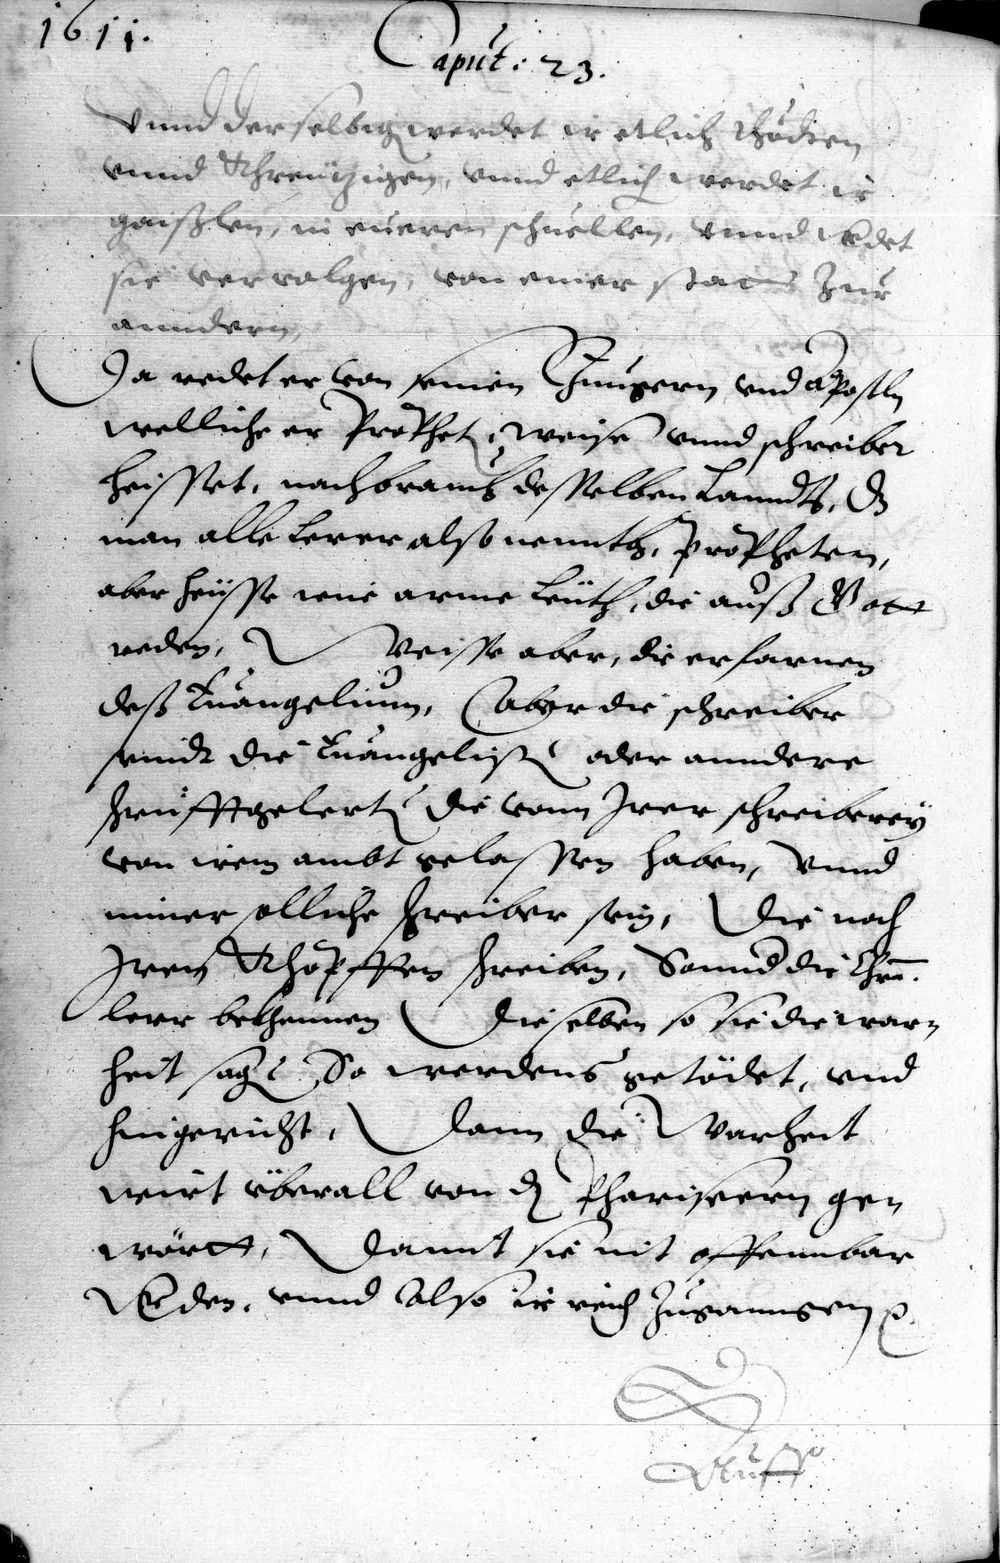 1611.
Caput: 23.
Vnnd derselbig werdet ir etlich thödten
vnnd Khreützigen, vnnd etlich werdet ir
gaißlen, in eueren schuellen, vnnd werdet
sie vervolgen, von einer statt zur
anndern,
Da redet er von seinen Jüngern vnd Apostln
welliche er Prophet, weise vnnd schreiber
heisset, nach brauch desselben Lanndts, da
man alle Lerer also nennth, Propheten,
aber heisse wie arme Leüth, die auß Gott
reden, Weisse aber, die erfarnen
deß Euangelium, Aber die schreiber
seindt die Euangelist oder anndere
schrüfftgelert die vonn Irer schreiberey
von irem ambt gelassen haben, vnnd
nimer solliche schreiber sein, Die nach
Irem Khöpffen schreiben, Sonnd die Chr.
leer bekhennen Dieselben so sie die war
heit sag So werdens getödet, vnd
hingericht, Dann die Warheit
wirt überall von den Phariseern
, Damit sie nit offennbar
werden, vnnd also ir reich